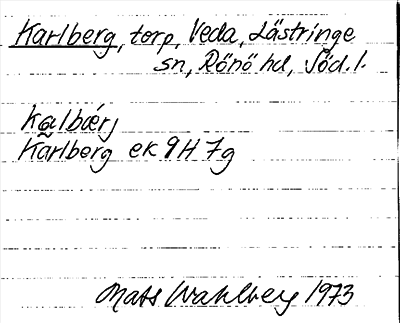 Karlberg, torp, Veda, Lästringe
sn, Rönö hd, Söd. l.
Kalbærj
Karlberg ek 9H 7g
Mats Wahlberg 1973